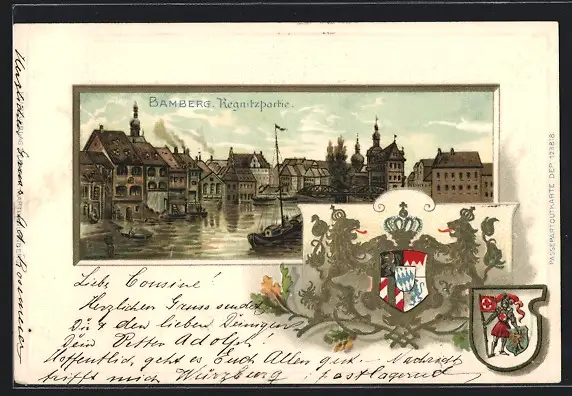 BAMBERG. Regnitzpartie.
Liebe Cousine!
Herzlichen Gruss sendet
Dir & den lieben Deinigen
Dein Vetter Adolph!
Hoffentlich geht es Euch Allen gut. – Nachricht
trifft mich Würzburg postlagernd
Herzlichen
PASSEPARTOUTKARTE DEP. 123818